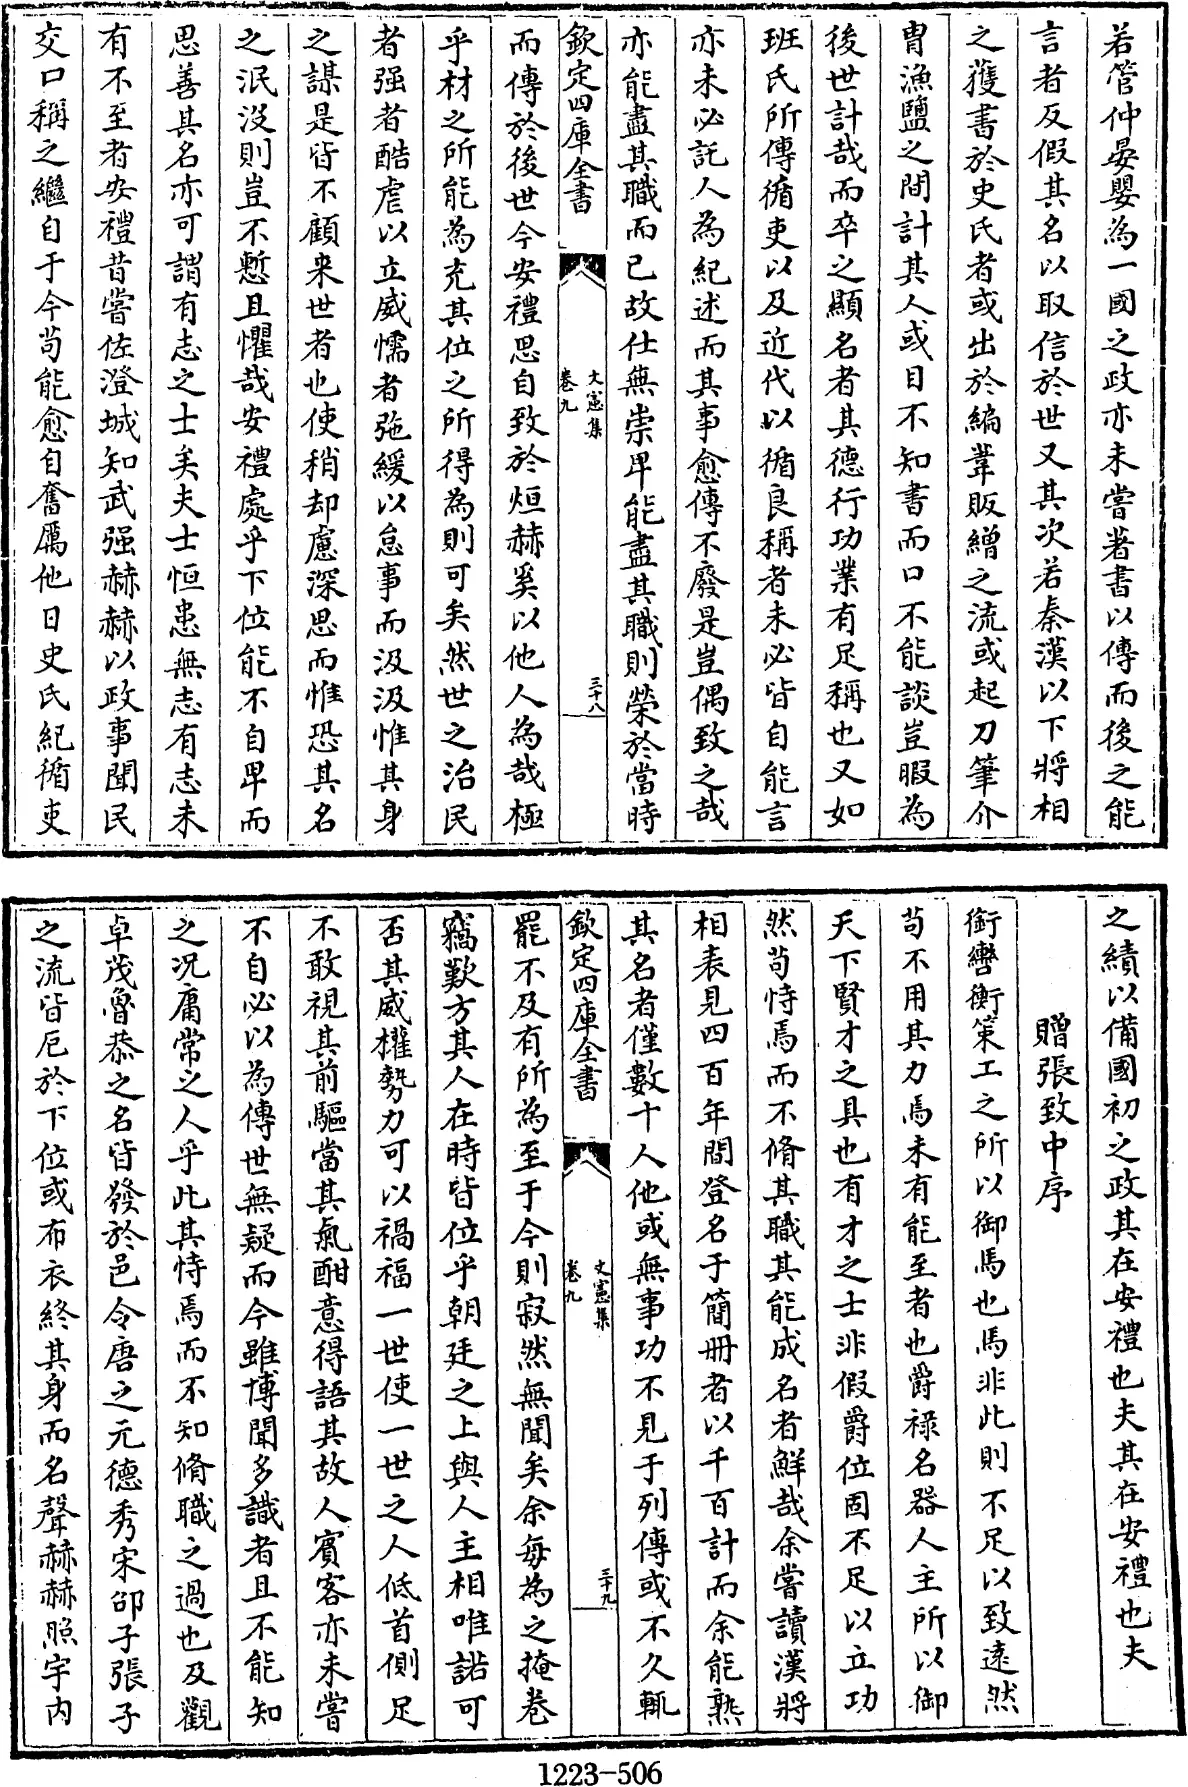 若管仲晏嬰為一國之政亦未嘗著書以傳而後之能
言者反假其名以取信於世又其次若秦漢以下將相
之獲書於史氏者或出於編葦販繒之流或起刀筆介
胄漁鹽之間計其人或目不知書而口不能談豈暇為
後世計哉而卒之顯名者其德行功業有足稱也又如
班氏所傳循吏以及近代以循良稱者未必皆自能言
亦未必託人為紀述而其事愈傳不廢是豈偶致之哉
亦能盡其職而已故仕無崇卑能盡其職則榮於當時
欽定四庫全書
文憲集
卷九
三十八
而傳於後世今安禮思自致於烜赫奚以他人為哉極
乎材之所能為充其位之所得為則可矣然世之治民
者强者酷虐以立威懦者弛緩以怠事而汲汲惟其身
之謀是皆不顧来世者也使稍却慮深思而惟恐其名
之泯没則豈不慙且懼哉安禮處乎下位能不自卑而
思善其名亦可謂有志之士矣夫士恒患無志有志未
有不至者安禮昔嘗佐澄城知武强赫赫以政事聞民
交口稱之繼自于今苟能愈自奮厲他日史氏紀循吏
之績以備國初之政其在安禮也夫其在安禮也夫
贈張致中序
銜轡衡策工之所以御馬也馬非此則不足以致遠然
苟不用其力焉未有能至者也爵祿名器人主所以御
天下賢才之具也有才之士非假爵位固不足以立功
然苟恃焉而不脩其職其能成名者鮮哉余嘗讀漢將
相表見四百年間登名于簡冊者以千百計而余能熟
其名者僅數十人他或無事功不見于列傳或不久輒
欽定四庫全書
文憲集
卷九
三十九
罷不及有所為至于今則寂然無聞矣余每為之掩卷
竊歎方其人在時皆位乎朝廷之上與人主相唯諾可
否其威權勢力可以禍福一世使一世之人低首側足
不敢視其前驅當其氣酣意得語其故人賓客亦未嘗
不自必以為傳世無疑而今雖博聞多識者且不能知
之况庸常之人乎此其恃焉而不知脩職之過也及觀
卓茂魯恭之名皆發於邑令唐之元德秀宋邵子張子
之流皆厄於下位或布衣終其身而名聲赫赫照宇内
1223-506